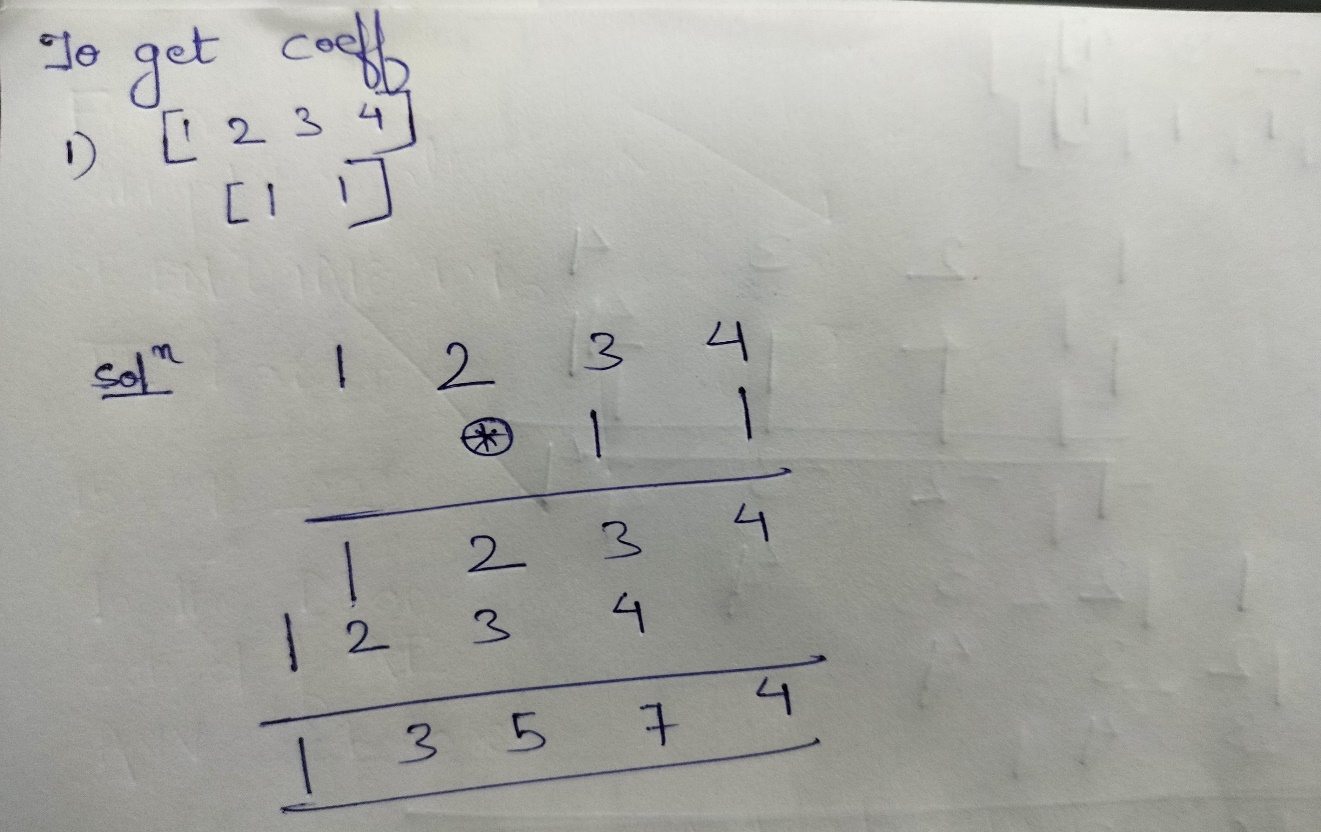 To get coeff
1) [1 2 3 4]
[1 1]
Solⁿ 1 2 3 4
⊛ 1 1
1 2 3 4
1 2 3 4
1 3 5 7 4